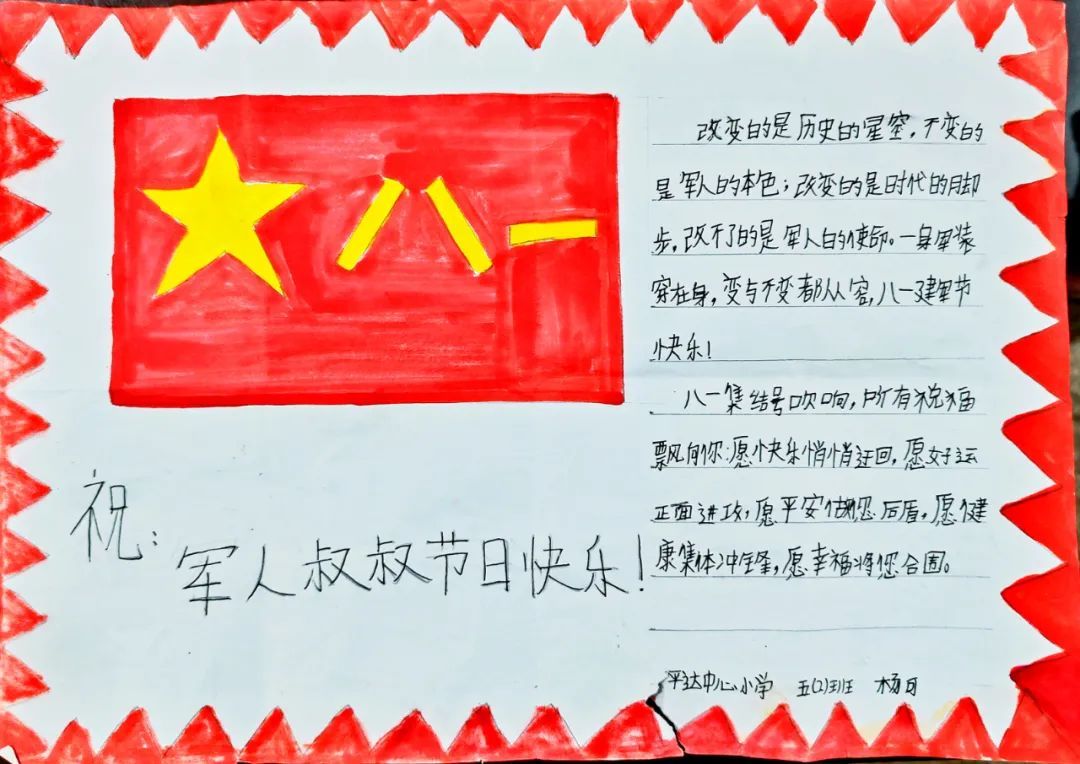 八一
祝:
军人叔叔节日快乐!
改变的是历史的星空,不变的
是军人的本色;改变的是时代的脚
步,改不了的是军人的使命。一身军装
穿在身,变与不变都从容,八一建军节
快乐!
八一集结号吹响,所有祝福
飘向你:愿快乐悄悄迂回,愿好运
正面进攻,愿平安做您后盾,愿健
康集体冲锋,愿幸福将您合围。
平达中心小学 五(2)班 杨